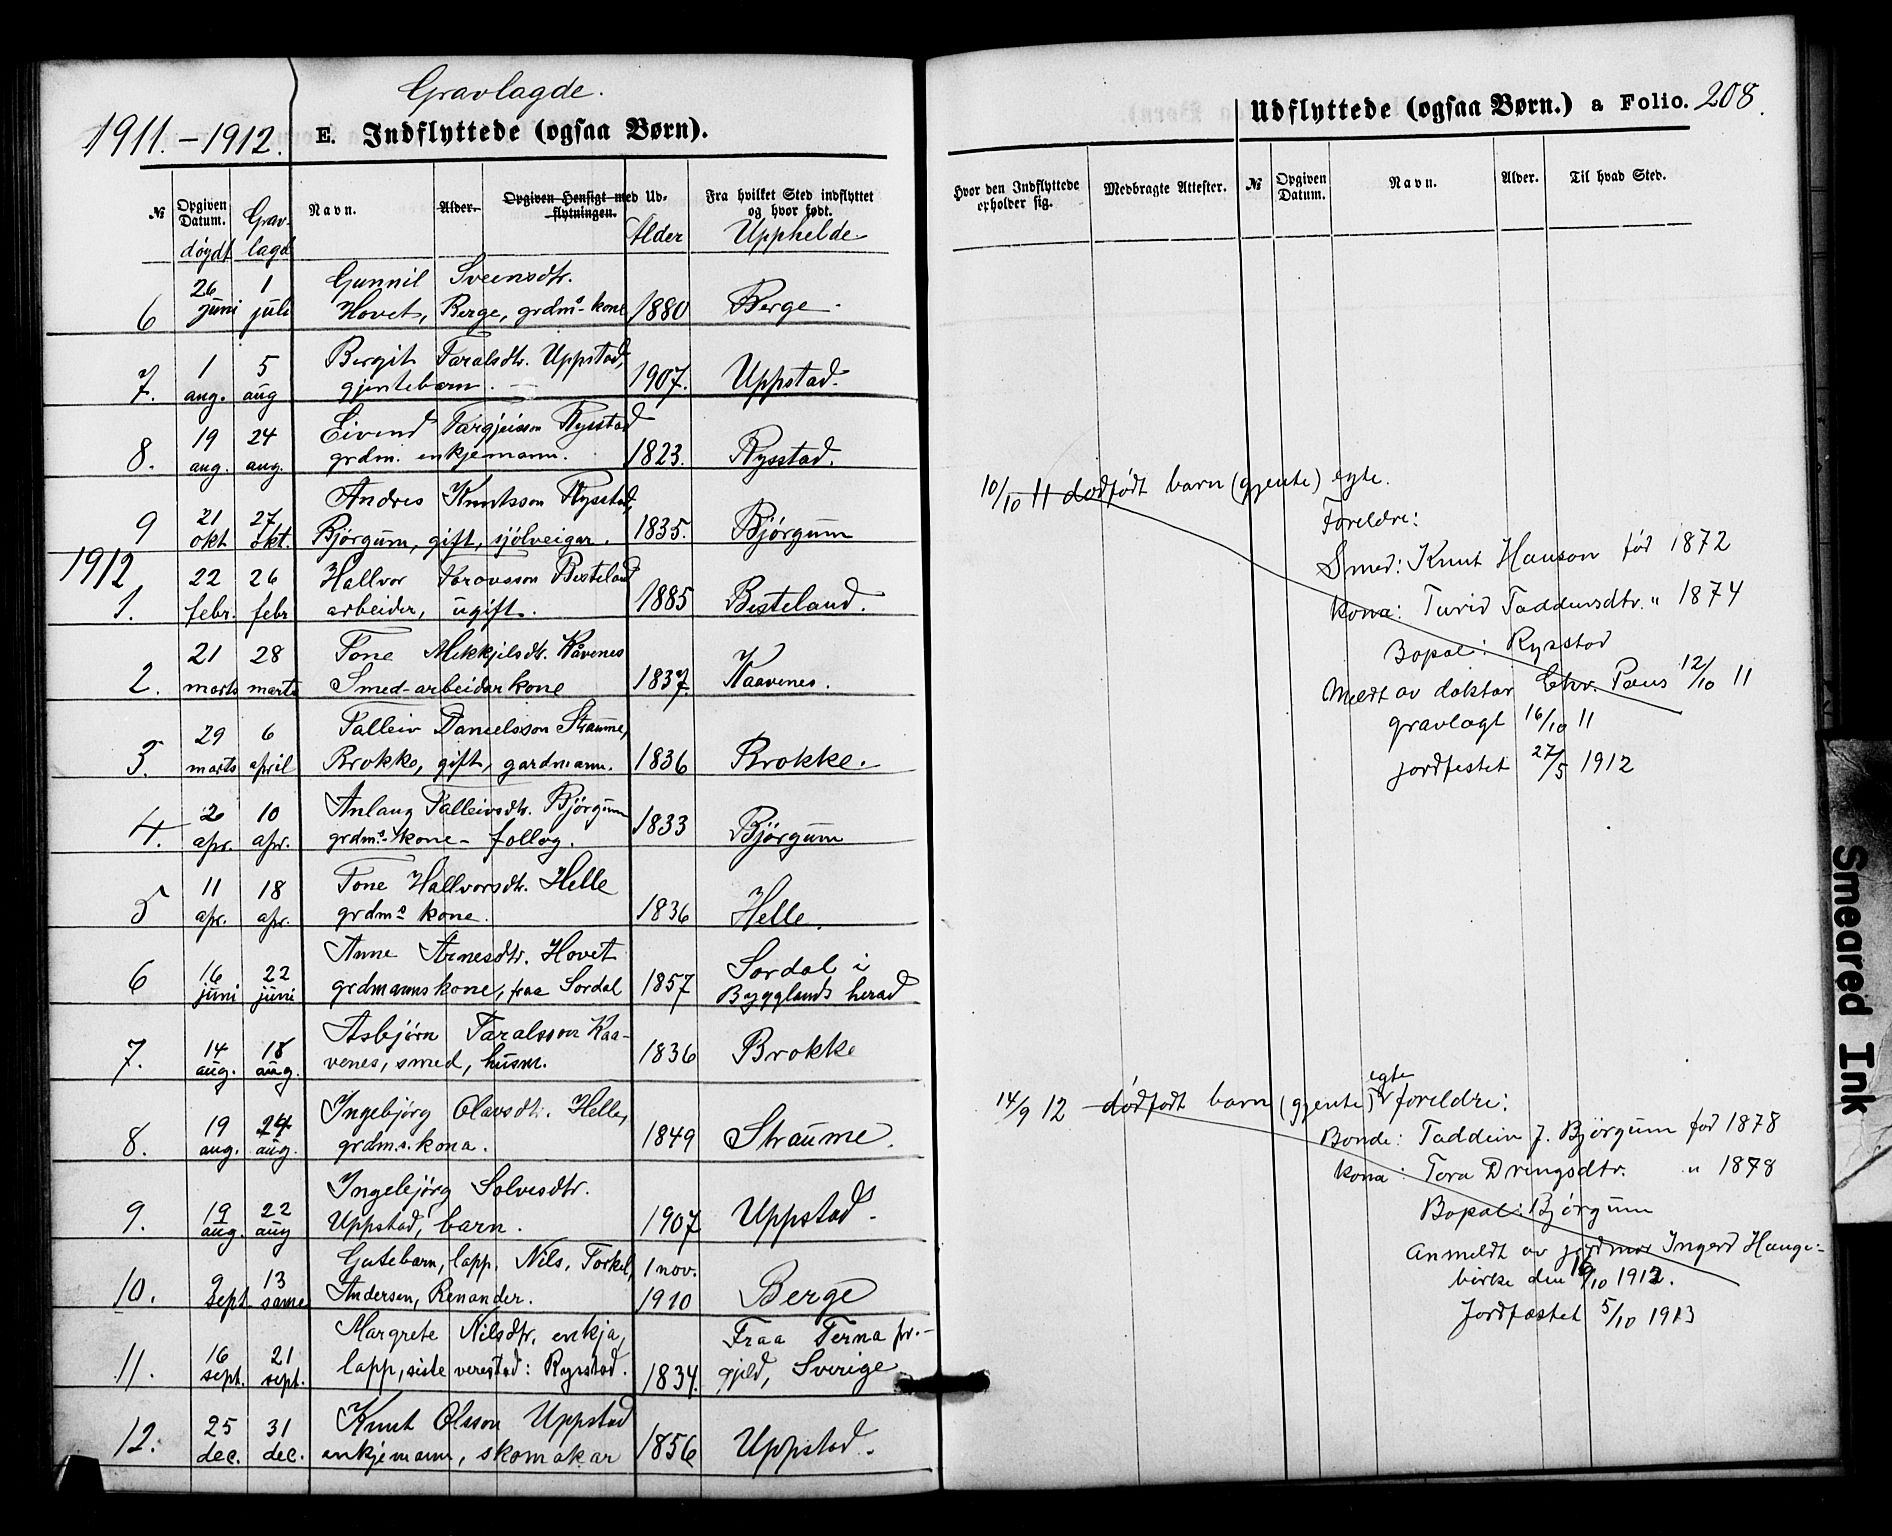 Gravlagde.
1911.-1912.
E. Indflyttede (ogsaa Børn).
№ Opgiven Datum. døydt Grav-lagd Navn. Alder. Opgiven Hensigt med Udflytningen. Alder Fra hvilket Sted indflyttet og hvor født. Upphelde
6 26 juni 1 juli Gunnil Sveensdtr.
Hovet, Berge, grdms-kone 1880 Berge
7. 1 aug. 5 aug Bergit Taralsdtr. Uppstad,
gjentebarn. 1907. Uppstad.
8. 19 aug. 24 aug. Eivind Targjeisson Rysstad
grdm. enkjemann. 1823. Rysstad.
9 21 okt 27 okt. Andres Knutsson Rysstad,
Bjørgum, gift, sjølveigar. 1835. Bjørgum
1912
1. 22 febr. 26 febr Hallvor Toravsson Besteland
arbeider, ugift. 1885 Besteland.
2. 21 marts 28 marts Tone Mekkjelsdt. Kåvenes
Smed-arbeidarkone 1837 Kaavenes.
3. 29 marts 6 april Talleiv Danielsson Straume,
Brokke, gift, gardmann. 1836 Brokke.
4. 2 apr. 10 apr. Anlaug Talleivsdtr. Bjørgum
grdms-kone- follog. 1833 Bjørgum
5 11 apr. 18 apr. Tone Hallvorsdt. Helle
grdms kone. 1836 Helle.
6 16 juni 22 juni Anne Arnesdtr. Hovet
grdmannskone, fraa Sordal 1857 Sordal i
Bygglands herad
7. 14 aug. 18 aug. Asbjørn Taralsson Kaa-
venes, smed, husm. 1836 Brokke
8. 19 aug. 24 aug. Ingebjørg Olavsdtr. Helle,
grdm.s. kona. 1849 Straume.
9. 19 aug. 22 aug Ingebjørg Solvesdtr.
Uppstad, barn. 1907 Uppstad.
10. 9 sept. 13 same Gutebarn, lapp. Nils, Torkel,
Andersen, Renander. 1 nov. 1910 Berge
11. 16 sept. 21 sept. Margrete Nilsdtr, enkja,
lapp, siste verestad: Rysstad. 1834. Fraa Terna pr.-
gjeld, Sverige
12. 25 dec. 31 dec. Knut Olsson Uppstad
enkjemann, skomakar 1856 Uppstad.
Udflyttede (ogsaa Børn.) a Folio. 208.
Hvor den Indflyttede opholder sig. Medbragte Attester. № Opgiven Datum. Navn. Alder. Til hvad Sted.
10/10 11 dødfødt barn (gjente) egte.
Foreldre:
Smed: Knut Hanson fød 1872
kona: Turid Taddensdtr. " 1874
Bopal: Rysstad
Meldt av doktor Chr. Paus 12/10 11
gravlagt 16/10 11
jordfestet 27/5 1912
14/9 12 dødfødt barn (gjente) egte foreldre:
Bonde: Taddein J. Bjørgum fød 1878
kona: Tora Drengsdtr. " 1878
Bopal: Bjørgum
Anmeldt av jordmor Ingerd Hauge-
birke den 16/10 1912.
Jordfæstet 5/10 1913
Smeared Ink